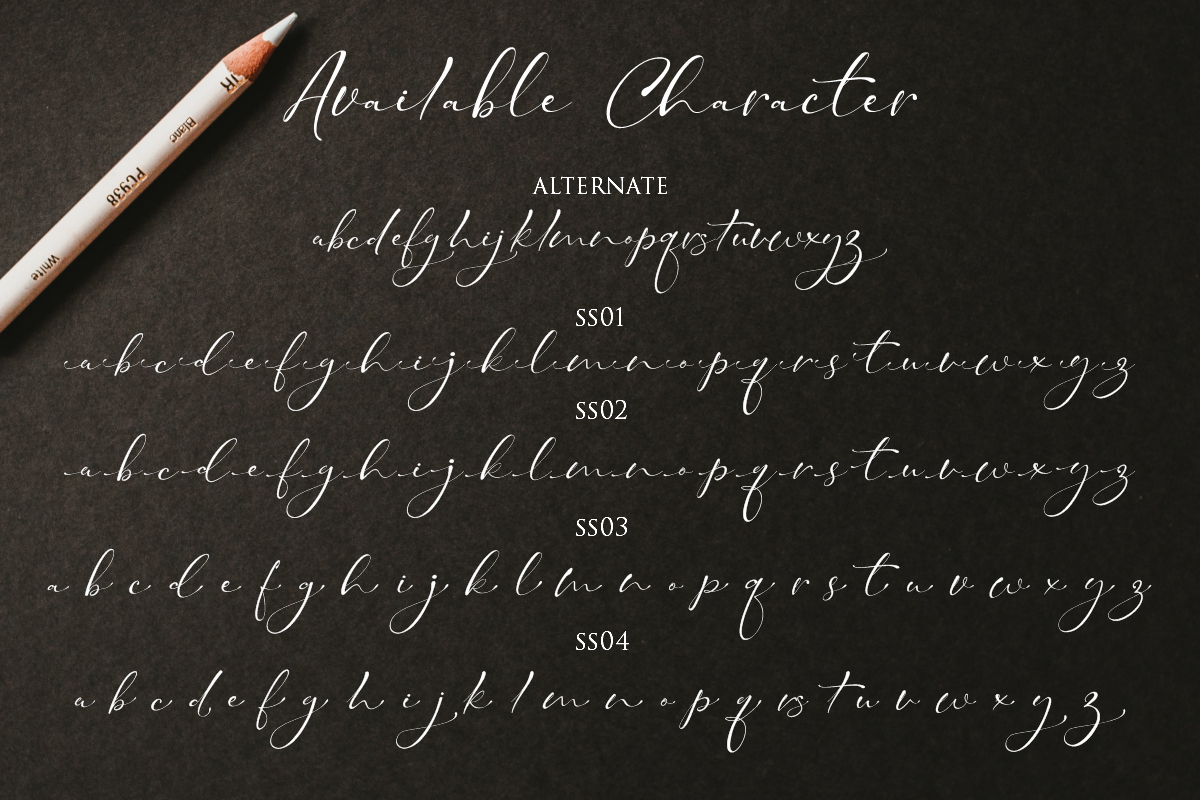 Available Character
ALTERNATE
abcdefghijklmnopqrstuvwxyz
SS01
a b c d e f g h i j k l m n o p q r s t u v w x y z
SS02
a b c d e f g h i j k l m n o p q r s t u v w x y z
SS03
a b c d e f g h i j k l m n o p q r s t u v w x y z
SS04
a b c d e f g h i j k l m n o p q r s t u v w x y z
Blanc
PC938
White